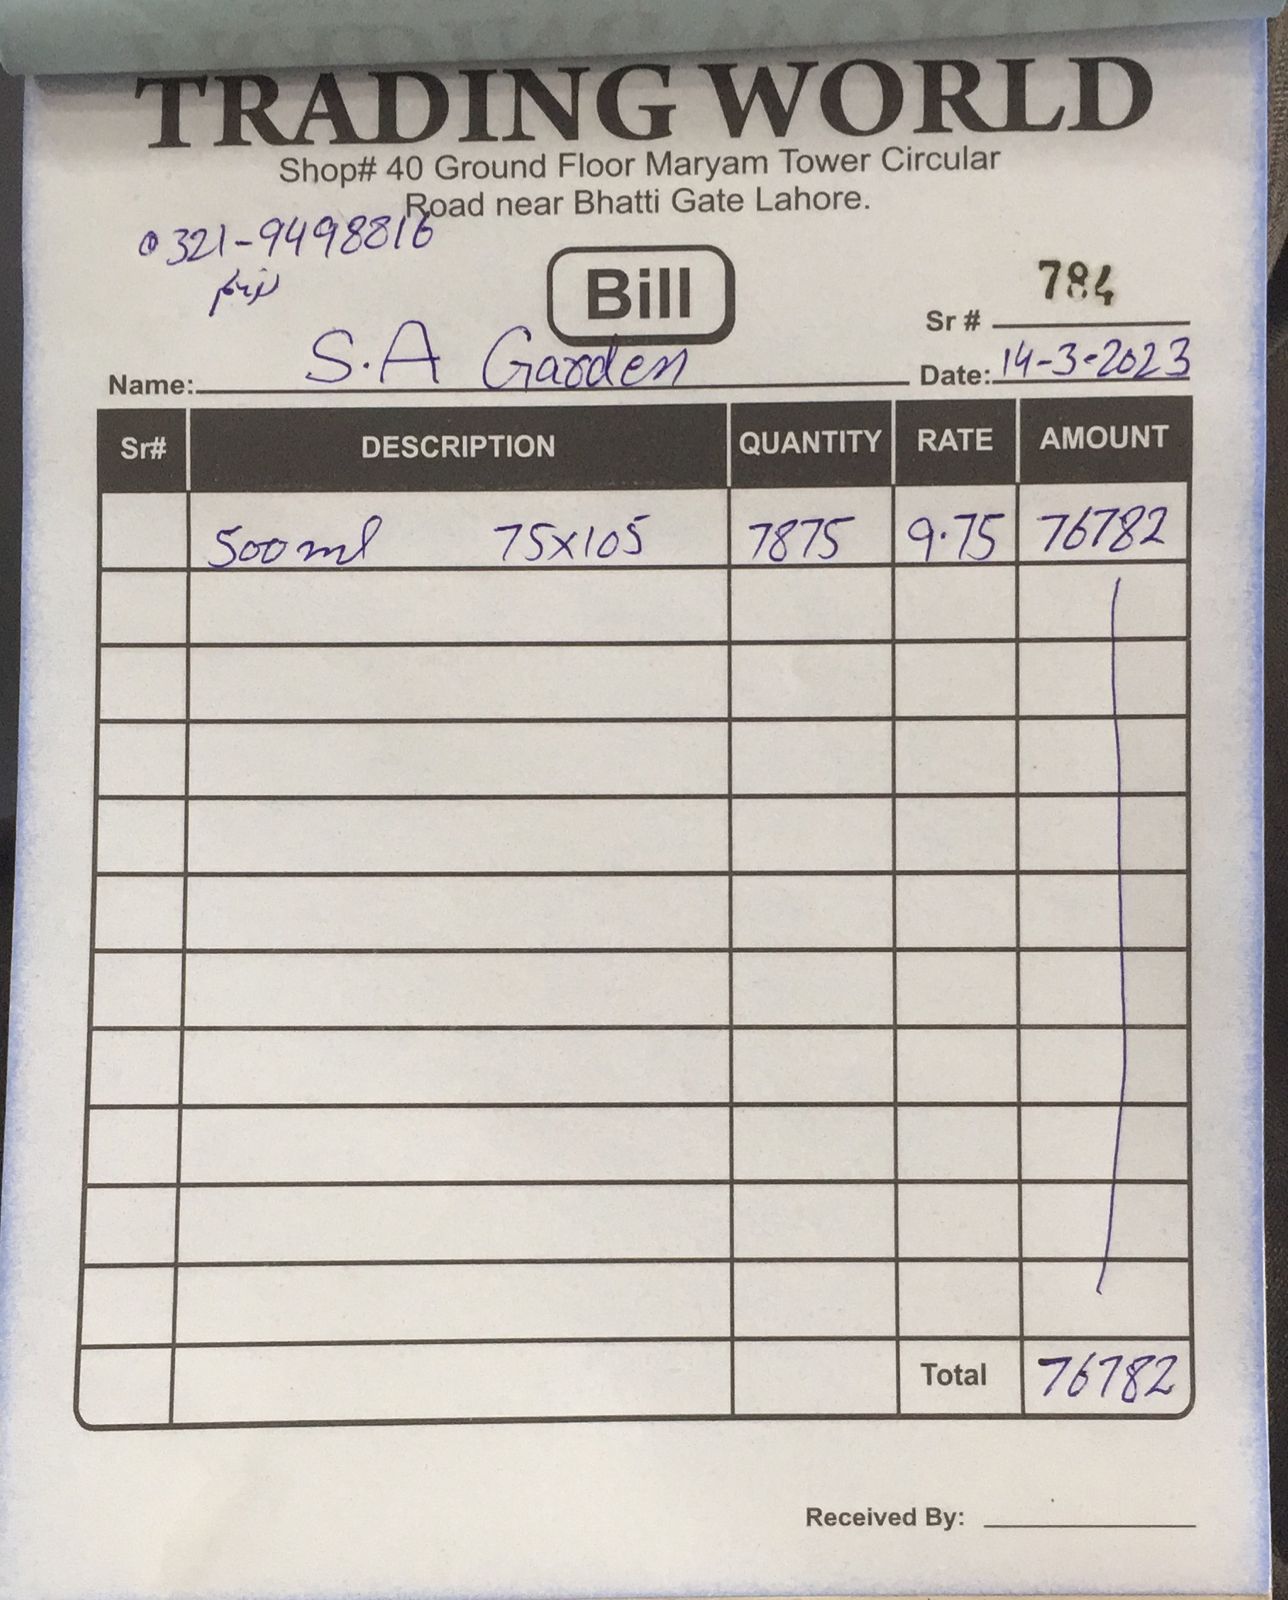 TRADING WORLD
Shop# 40 Ground Floor Maryam Tower Circular
Road near Bhatti Gate Lahore.
0321-9498816
Bill
Sr # 784
Name: S.A Garden
Date: 14-3-2023
Sr# DESCRIPTION QUANTITY RATE AMOUNT
500 ml 75x105 7875 9.75 76782
Total 76782
Received By: